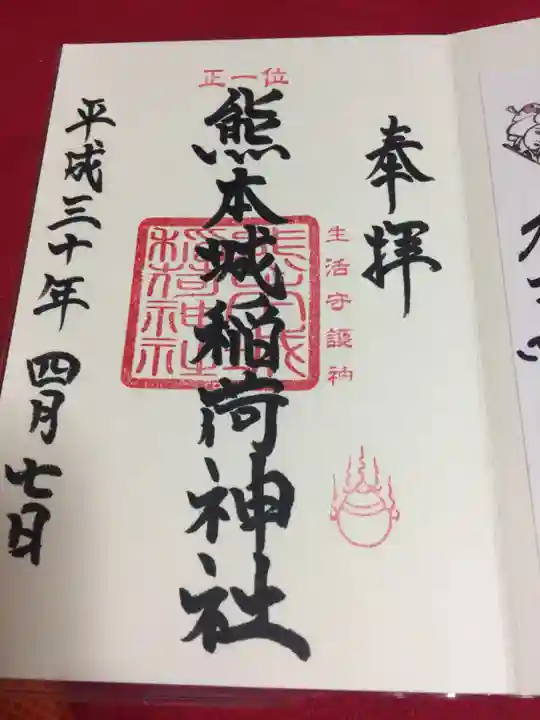 奉拝
生活守護神
正一位
熊本城稲荷神社
熊本城稲荷神社
平成三十年四月七日